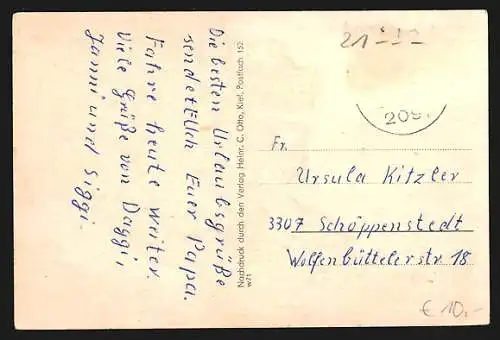 Die besten Urlaubsgrüße
sendet Euch Euer Papa.
Fahre heute weiter.
Viele Grüße von Daggi,
Janni und Siggi.
Nachdruck durch den Verlag Heinr. C. Otto, Kiel, Postfach 152
w71
21
Fr.
Ursula Kitzler
3307 Schöppenstedt
Wolfenbüttelerstr 18
€ 10,-